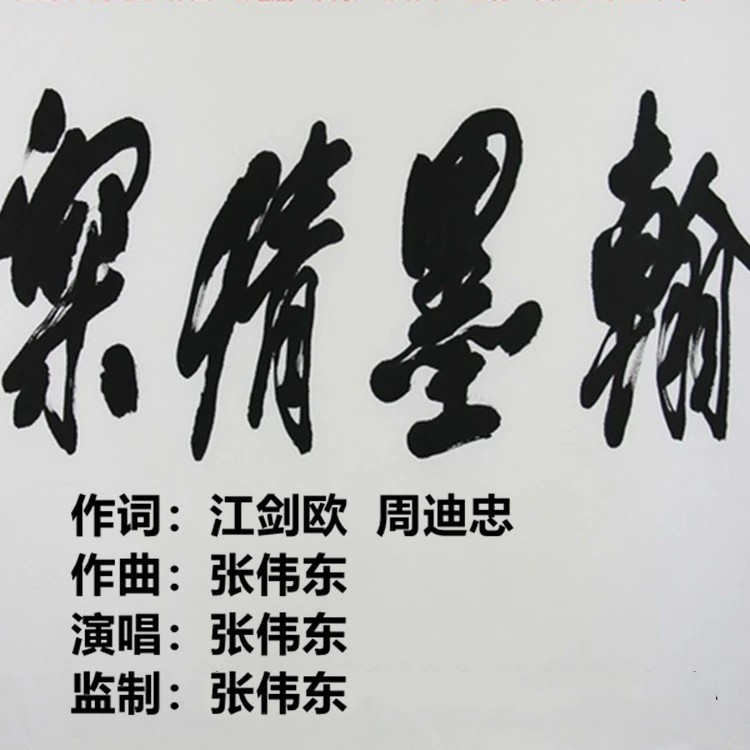 翰墨情深
作词：江剑欧 周迪忠
作曲：张伟东
演唱：张伟东
监制：张伟东